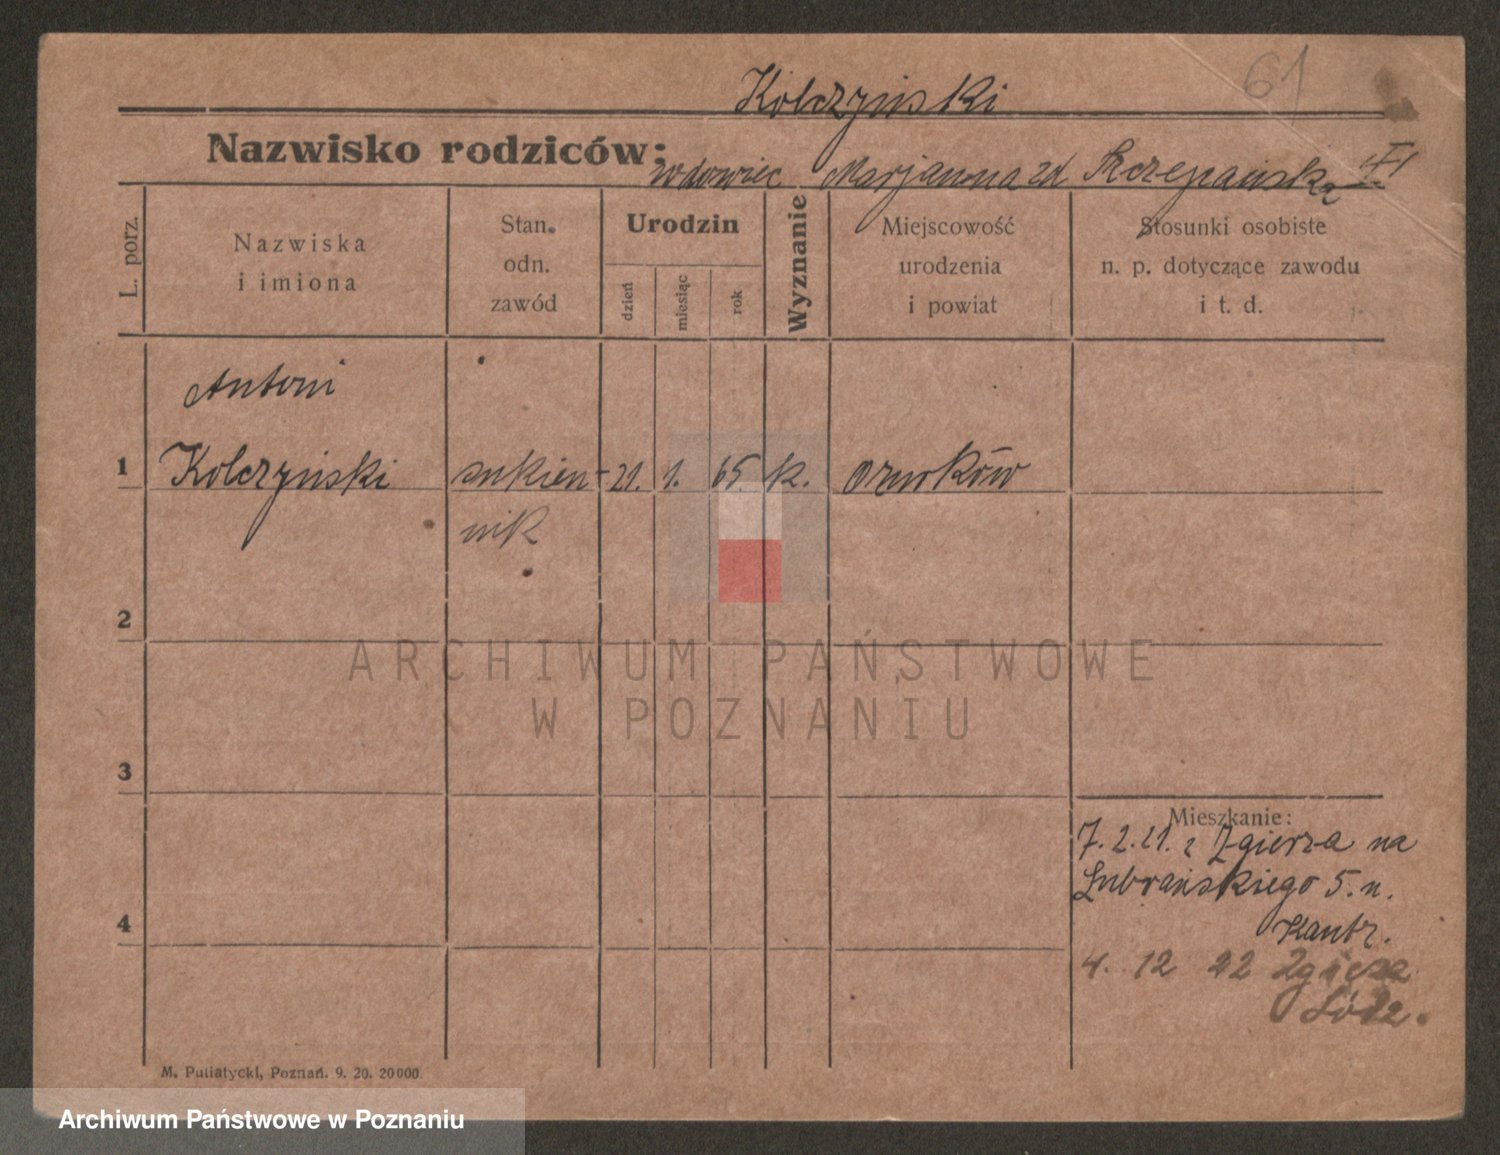 61
Kolczyński
Nazwisko rodziców:
wdowiec Marjanna zd Szczepańska
L. porz.
Nazwiska
i imiona
Stan.
odn.
zawód
Urodzin
dzień
miesiąc
rok
Wyznanie
Miejscowość
urodzenia
i powiat
Stosunki osobiste
n. p. dotyczące zawodu
i t. d.
Antoni
1 Kolczyński sukien- 21. 1. 65. k. Ozorków
nik
2
3
4
Mieszkanie:
7. 2. 21. z Zgierza na
Lubrańskiego 5. n.
Kantz.
4. 12 22 Zgierz
Łódz.
M. Putiatycki, Poznań. 9. 20. 20000.
ARCHIWUM PAŃSTWOWE
W POZNANIU
Archiwum Państwowe w Poznaniu